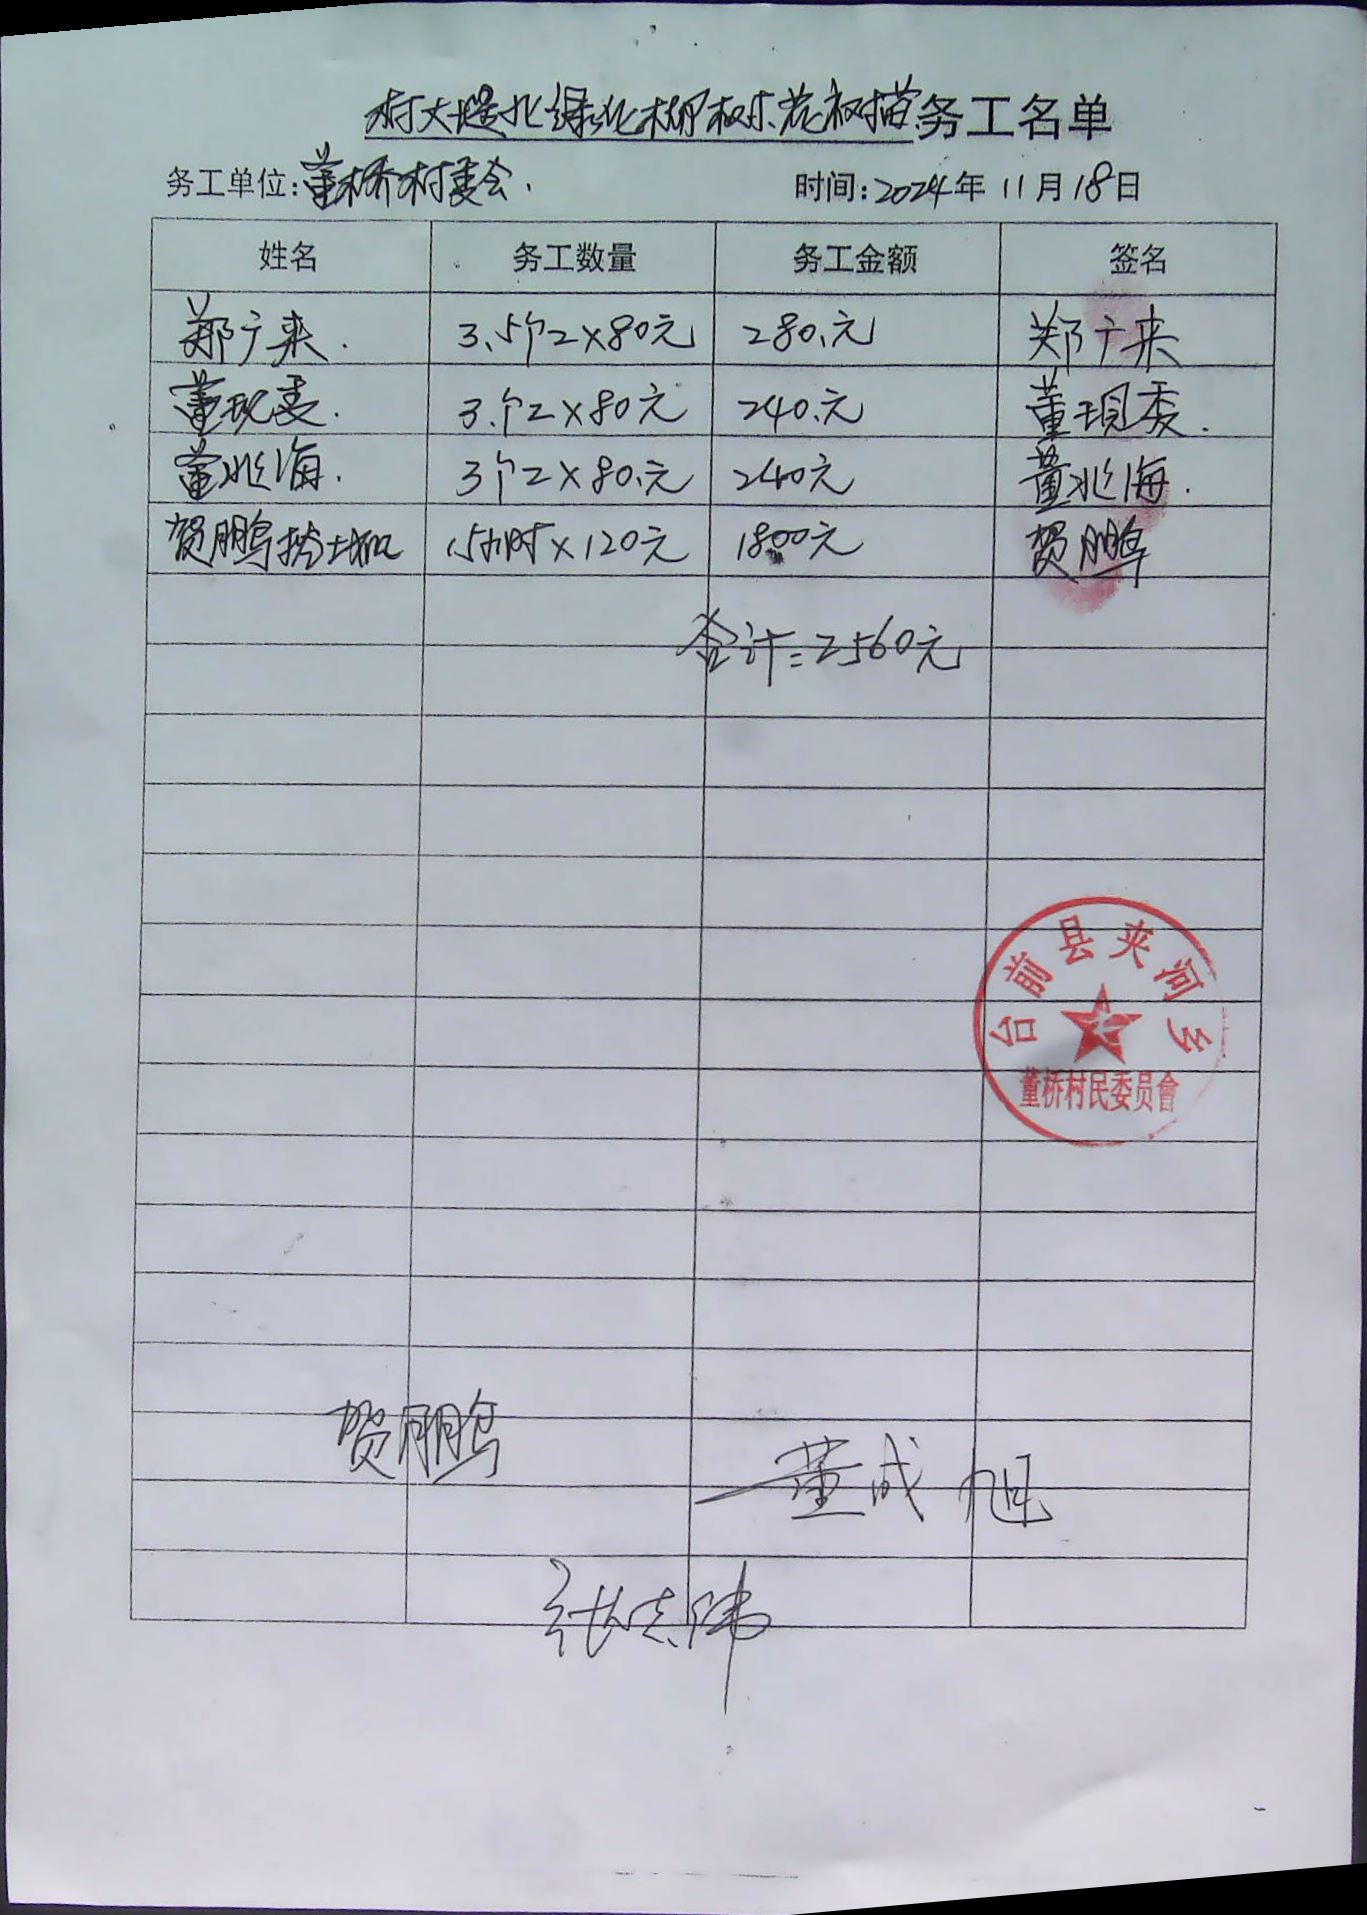 村大堤北绿化柳树花树苗务工名单
务工单位:董桥村委会. 时间:2024年 11月18日
姓名 务工数量 务工金额 签名
郑广来. 3.5个工×80元 280.元 郑广来
董现委. 3.个工×80元 240.元 董现委.
董兆海. 3个工×80.元 240元 董兆海.
贺鹏鸟挖土机 15小时×120元 1800元 贺鹏鸟
合计=2560元
台前县夹河乡
董桥村民委员會
贺鹏鸟
董成旭
张志伟